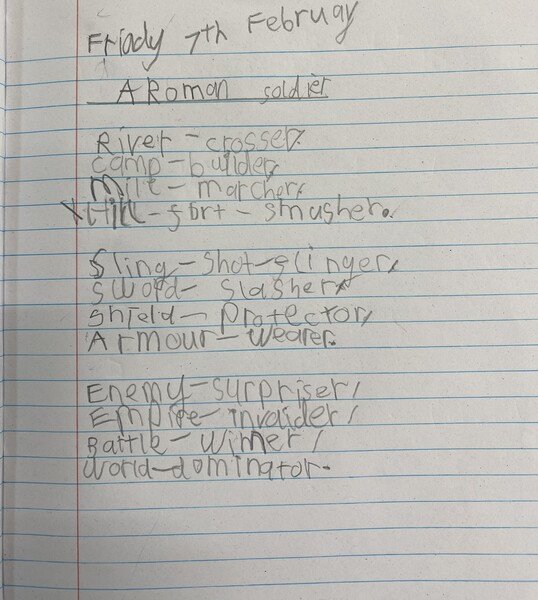 Friady 7th Februay
A Roman soldier
River-crosser,
camp-builder,
Mile-marcher,
Hill-fort-smasher.
Sling-shot-slinger,
sword-slasher,
shield-protector,
Armour-wearer.
Enemy-surpriser,
Empire-invaider,
Battle-winner,
world-dominator.